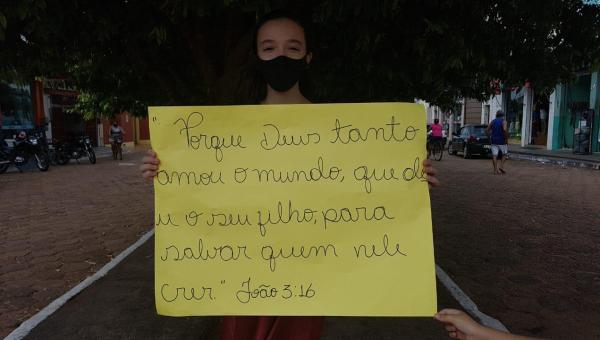 " Porque Deus tanto
amou o mundo, que de
u o seu filho, para
salvar quem nele
crer." João 3:16